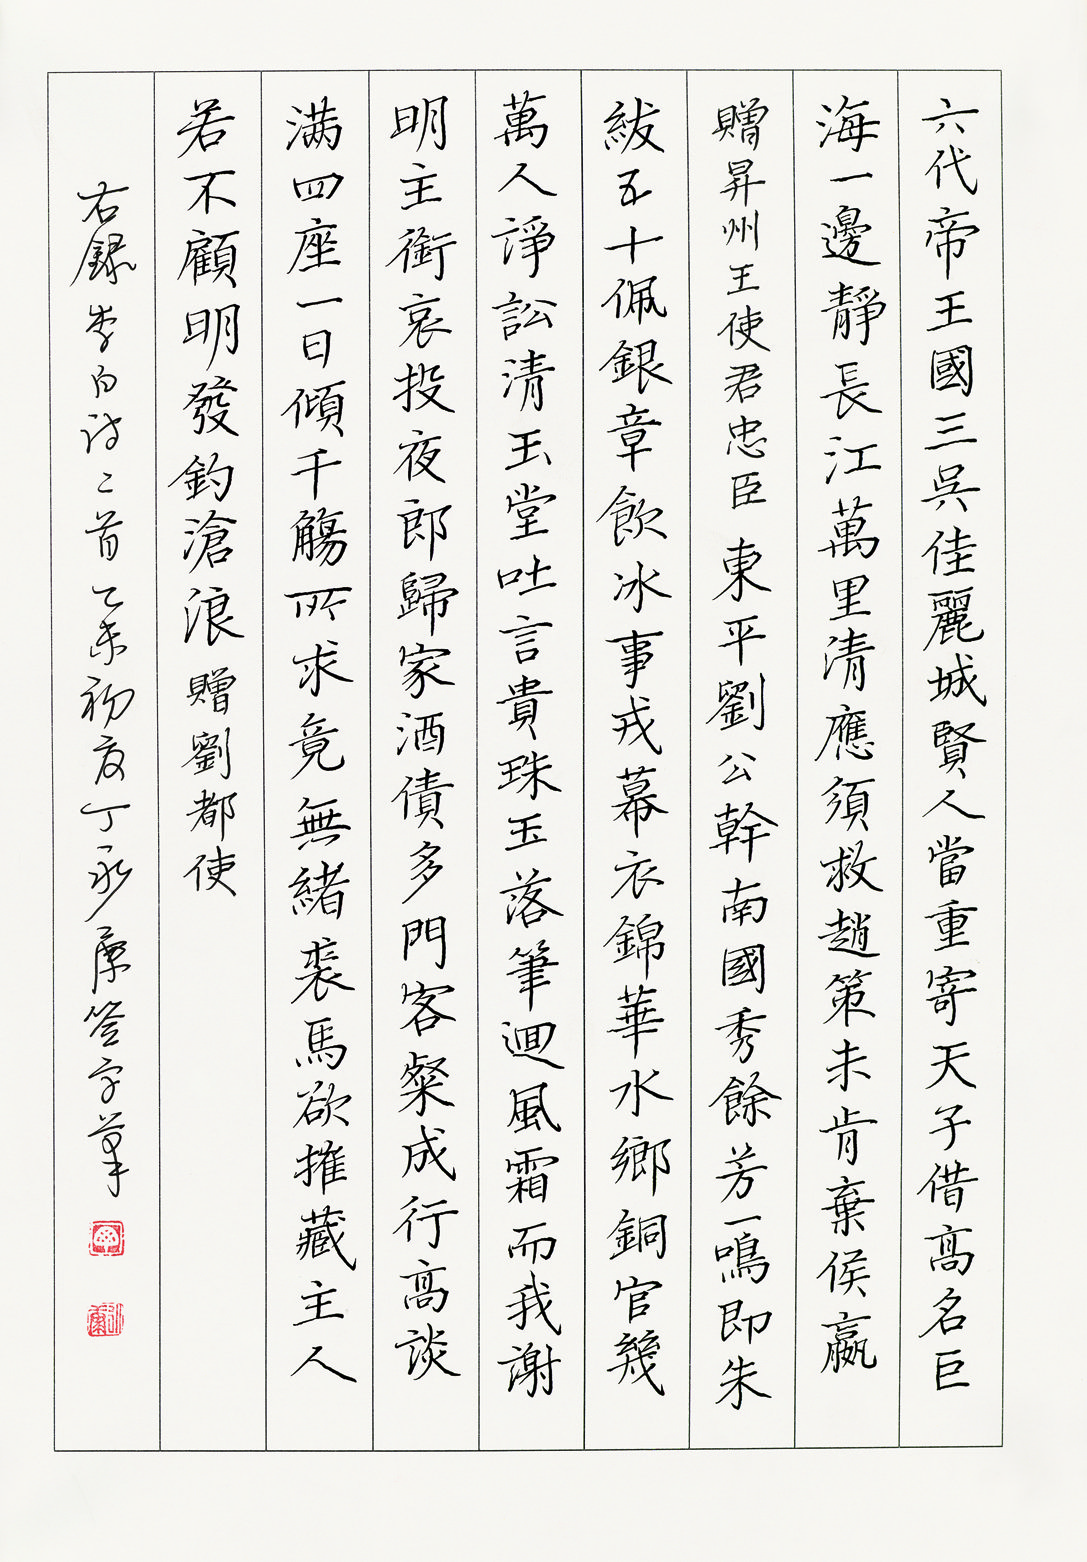 六代帝王國三吳佳麗城賢人當重寄天子借高名巨
海一邊靜長江萬里清應須救趙策未肯棄侯嬴
贈昇州王使君忠臣 東平劉公幹南國秀餘芳一鳴即朱
紱五十佩銀章飲冰事戎幕衣錦華水鄉銅官幾
萬人諍訟清玉堂吐言貴珠玉落筆迴風霜而我謝
明主銜哀投夜郎歸家酒債多門客粲成行高談
满四座一日傾千觴所求竟無緒裘馬欲摧藏主人
若不顧明發釣滄浪 贈劉都使
右録李白詩二首乙未初夏丁永康签字筆